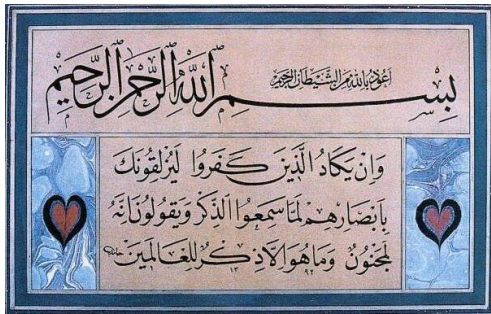 اعوذ بالله من الشيطان الرجيم
بسم الله الرحمن الرحيم
وان يكاد الذين كفروا ليزلقونك
بابصارهم لما سمعوا الذكر ويقولون انه
لمجنون وما هو الا ذكر للعالمين